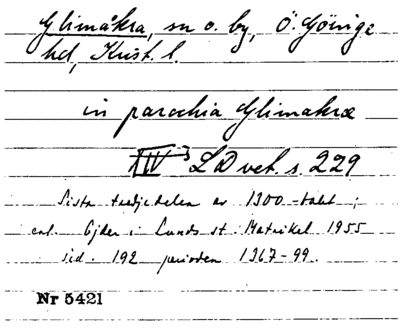 Glimåkra, sn o. by, Ö. Göinge
hd, Krist. l.
in parochia Glimakræ
XIV 3 LD vet. s. 229
Sista tredjedelen av 1300-talet;
enl. Ejder i Lunds st. Matrikel 1955
sid. 192 perioden 1367-99.
Nr 5421